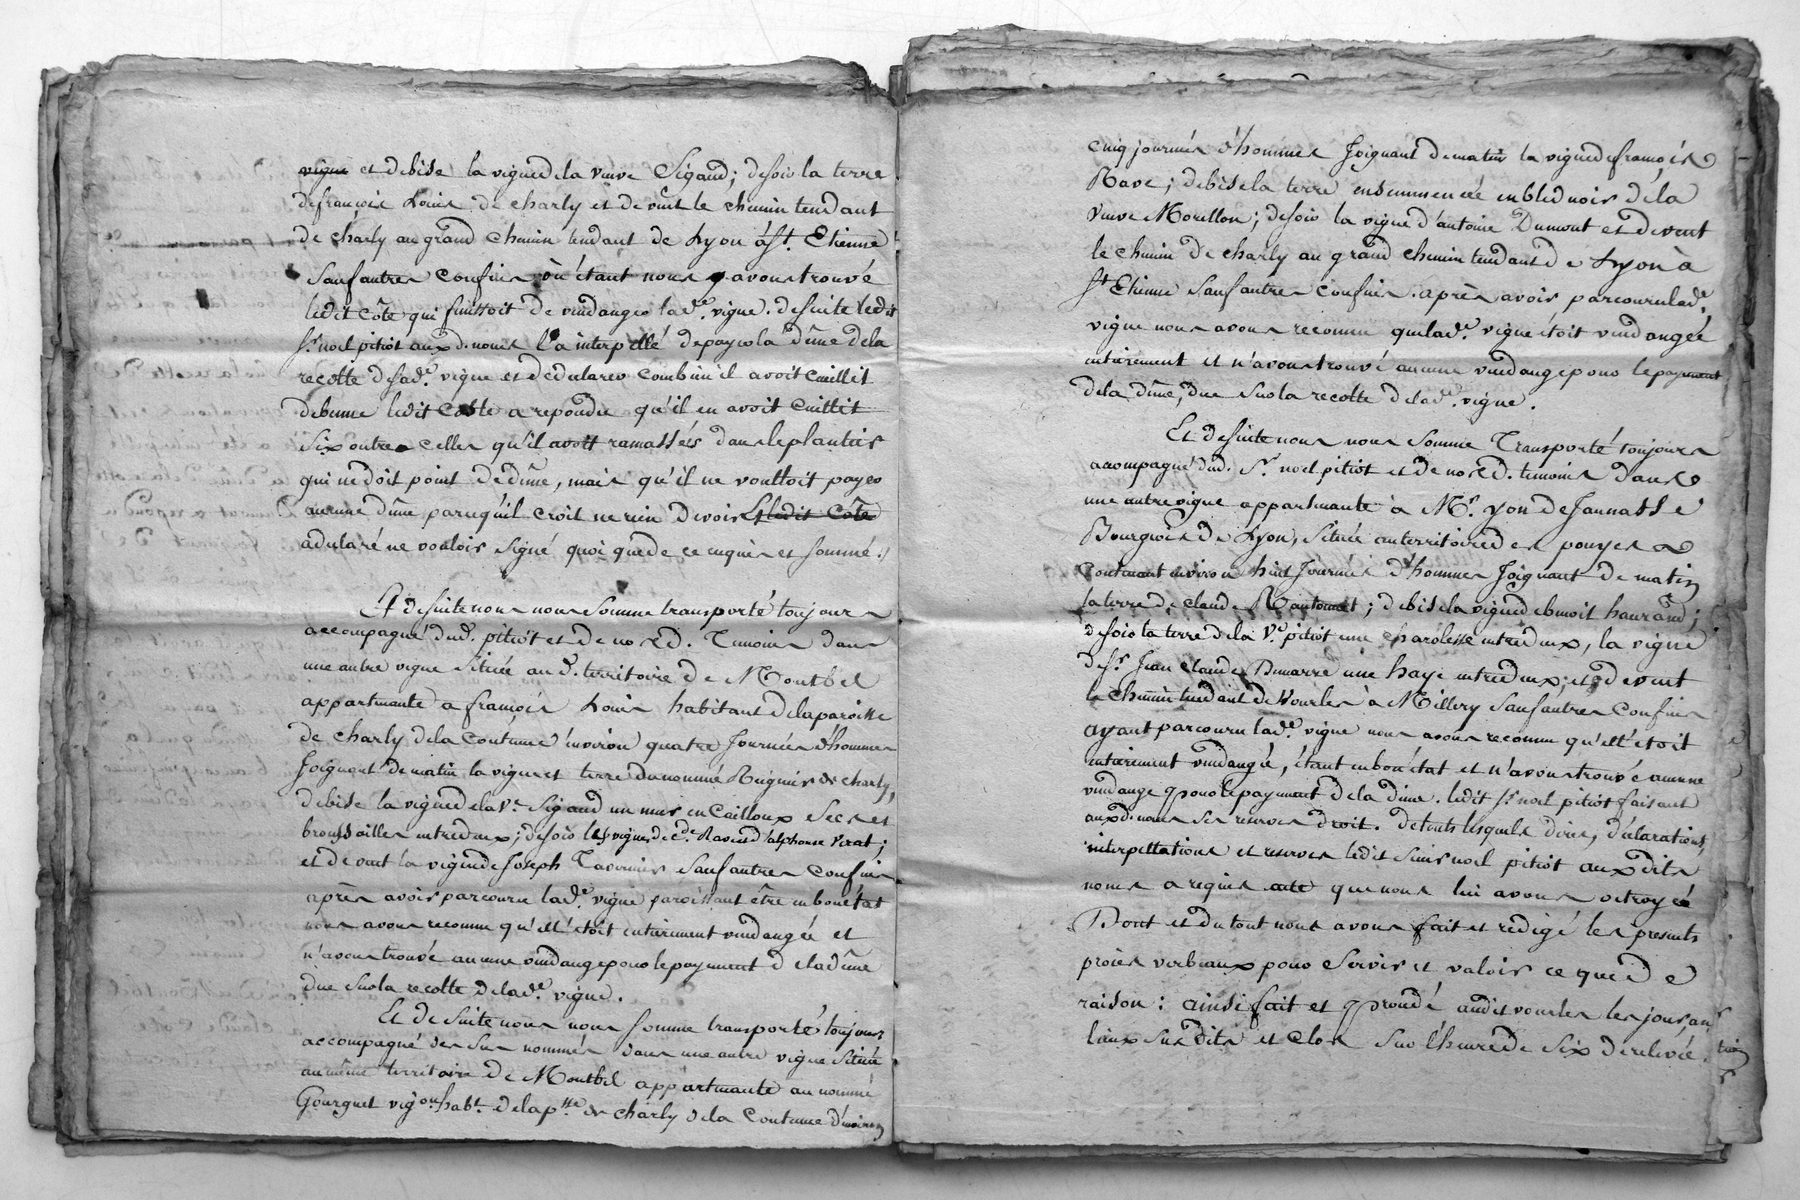 vigne et debise la vigne de la veuve Sigaud; de soir la terre
de françois Louis de charly et de vent le chemin tendant
de charly au grand chemin tendant de Lyon à St. Etienne
sauf autres confins où étant nous avons trouvé
ledit côte qui finissoit de vendanger lade. vigne. de suite ledit
Sr. noel pitiot auxd. noms l'a interpellé de payer la dîme de la
recolte de sade. vigne et de declarer combien il avoit cueillit
de benne ledit Coste a repondu qu'il en avoit cuillit
six outre celles qu'il avoit ramassées dans le plantier
qui ne doit point de dîme, mais qu'il ne vouloit payer
aucune dîme parcequ'il croit ne rien devoir Et ledit Côte
a declaré ne vouloir signé quoi que de ce requis et sommé.
Et de suite nous nous somme transporté toujours
accompagné dud. pitiot et de nosd. Temoins dans
une autre vigne située aud. territoire de Montbel
appartenante a françois Louis habitant de la paroisse
de charly de la contenue environ quatre Journées d'hommes
Joignant de matin la vigne et terre du nommé Reignier de charly,
de bise la vigne de la ve. Sigaud un mur en cailloux secs et
broussailles entredeux; de soir les vignes de Cde. Ravier d'alphonse Verat;
et de vent la vigne de Joseph Tavernier sauf autres confins
après avoir parcouru lade. vigne paroissant être en bon état
nous avons reconnu qu'elle étoit entierement vendangée et
n'avons trouvé aucune vendange pour le payement de la dîme
due sur la recolte de lade. vigne.
Et de suite nous nous somme transporté toujours
accompagné des sus nommés dans une autre vigne située
au même territoire de Montbel appartenante au nommé
Gourguet vigon. habt. de la psse. de charly de la Contenue d'environ
cinq journées d'hommes Joignant de matin la vigne de françois
Rave; de bise la terre ensemmencée en bled noir de la
veuve Morellon; de soir la vigne d'antoine Dumont et de vent
le chemin de charly au grand chemin tendant de Lyon à
St Etienne sauf autres confins. après avoir parcouru lade.
vigne nous avons reconnu que lade. vigne étoit vendangée
entierement et n'avons trouvé aucune vendange pour le payement
de la dîme, due sur la recolte de lade. vigne.
Et de suite nous nous somme Transporté toujours
acompagné dud. Sr. noel pitiot et de nosd. temoins dans
une autre vigne appartenante à Mr. yon de Jannassé
Bourgeois de Lyon, située au territoire des
contenant environ huit Journées d'hommes Joignant de matin
la terre de claude; de bise la vigne de benoit haurand;
de soir la terre de la Ve. pitiot une charolesse entredeux, la vigne
de Sr. Jean claude Dumarre une haye entredeux; et de vent
le chemin tendant de Vourles à Millery sauf autres confins
ayant parcouru lade. vigne nous avons reconnu qu'elle étoit
entierement vendangée, étant en bon état et n'avons trouvé aucune
vendange pour le payement de la dîme. ledit Sr. noel pitiot faisant
auxd. noms ses reserves droit. Desquels dires, déclarations,
interpellations et reserves ledit sieur noel pitiot auxdits
noms a requis acte que nous lui avons octroyé
Dont et du tout nous avons fait et redigé les presents
procès verbeaux pour servir et valoir ce que de
raison: ainsi fait et procedé audit vourles les jour, an
lieux susdits et clos sur l'heure de six de relevée.